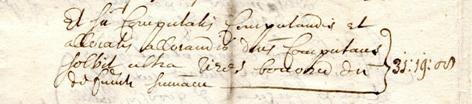 Et sic Computatis Computandis et
allocatis allocandis dictus Computans
solvit ultra vires bonorum dicti
defuncti summam 31:19:08